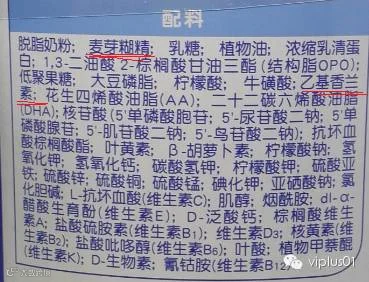 配料
脱脂奶粉; 麦芽糊精; 乳糖; 植物油; 浓缩乳清蛋
白; 1,3-二油酸 2-棕榈酸甘油三酯 (结构脂OPO);
低聚果糖; 大豆磷脂; 柠檬酸; 牛磺酸; 乙基香兰
素; 花生四烯酸油脂(AA); 二十二碳六烯酸油脂
(DHA); 核苷酸 (5'单磷酸胞苷; 5'-尿苷酸二钠; 5'单
磷酸腺苷; 5'-肌苷酸二钠; 5'-鸟苷酸二钠); 抗坏血
酸棕榈酸酯; 叶黄素; β-胡萝卜素; 柠檬酸钠; 氢
氧化钾; 氢氧化钙; 碳酸氢钾; 柠檬酸钾; 硫酸亚
铁; 硫酸锌; 硫酸铜; 硫酸锰; 碘化钾; 亚硒酸钠; 氯
化胆碱; L-抗坏血酸(维生素C); 肌醇; 烟酰胺; dl-α-
醋酸生育酚(维生素E); D-泛酸钙; 棕榈酸维生
素A; 盐酸硫胺素(维生素B1); 维生素D3; 核黄素(维
生素B2); 盐酸吡哆醇(维生素B6); 叶酸; 植物甲萘醌
(维生素K); D-生物素; 氰钴胺(维生素B12)
viplus01